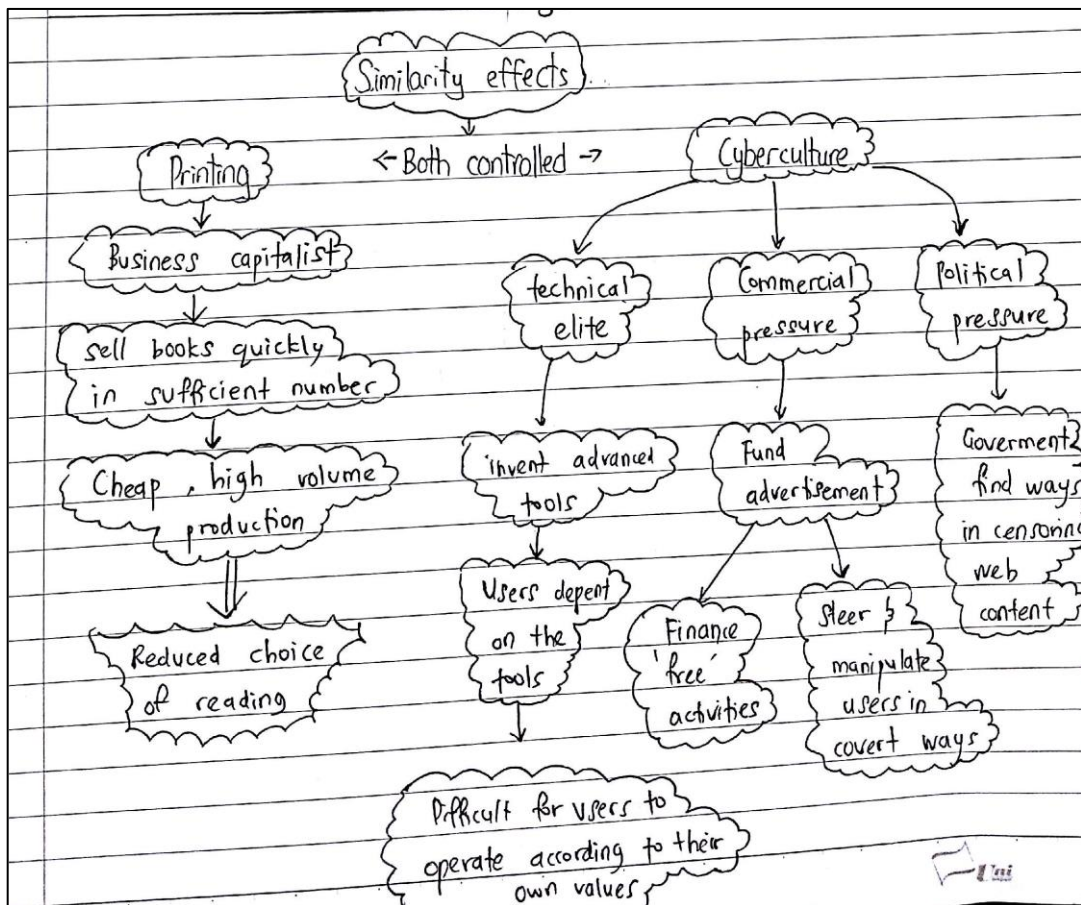 Similarity effects
Printing
<- Both controlled ->
Cyberculture
Business capitalist
sell books quickly
in sufficient number
Cheap, high volume
production
Reduced choice
of reading
technical
elite
invent advanced
tools
Users depent
on the
tools
Difficult for users to
operate according to their
own values
Commercial
pressure
Fund
advertisement
Finance
'free'
activities
Steer &
manipulate
users in
covert ways
Political
pressure
Goverment
find ways
in censoring
web
content
Uni